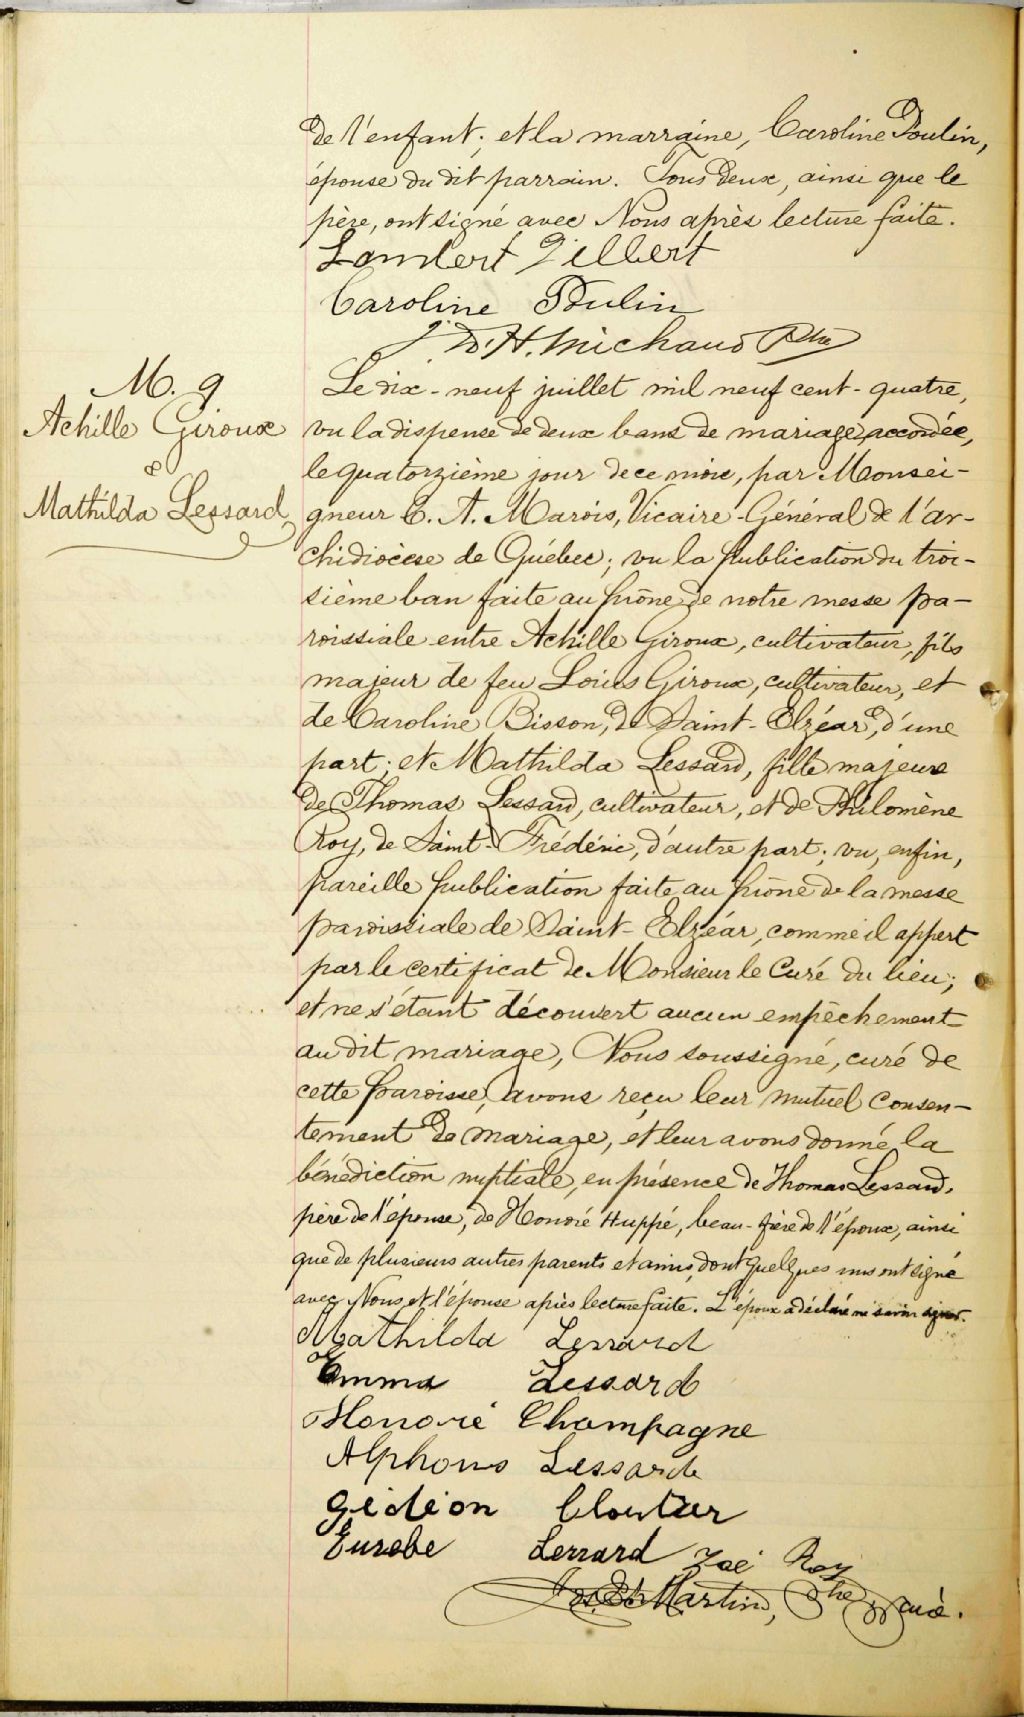 de l'enfant; et la marraine, Caroline Poulin,
épouse du dit parrain. Tous deux, ainsi que le
père, ont signé avec Nous après lecture faite.
Lambert Gilbert
Caroline Poulin
J. D. H. Michaud Ptre
M. 9
Achille Giroux
&
Mathilda Lessard
Le dix-neuf juillet mil neuf cent-quatre,
vu la dispense de deux bans de mariage accordée,
le quatorzième jour de ce mois, par Monsei-
gneur C. A. Marois, Vicaire-Général de l'ar-
chidiocèse de Québec; vu la publication du troi-
sième ban faite au prône de notre messe pa-
roissiale entre Achille Giroux, cultivateur, fils
majeur de feu Louis Giroux, cultivateur, et
de Caroline Bisson, de Saint-Elzéar, d'une
part; et Mathilda Lessard, fille majeure
de Thomas Lessard, cultivateur, et de Philomène
Roy, de Saint-Frédéric, d'autre part; vu, enfin,
pareille publication faite au prône de la messe
paroissiale de Saint-Elzéar, comme il appert
par le certificat de Monsieur le Curé du lieu;
et ne s'étant découvert aucun empêchement
au dit mariage, Nous soussigné, curé de
cette paroisse, avons reçu leur mutuel consen-
tement de mariage, et leur avons donné la
bénédiction nuptiale, en présence de Thomas Lessard,
père de l'épouse, de Honoré Huppé, beau-frère de l'époux, ainsi
que de plusieurs autres parents et amis, dont quelques uns ont signé
avec Nous et l'épouse après lecture faite. L'époux a déclaré ne savoir signer.
Mathilda Lessard
Emma Lessard
Honorié Champagne
Alphons Lessard
Gédéon Cloutier
Eusebe Lessard Zoé Roy
Martin, Ptre, curé.